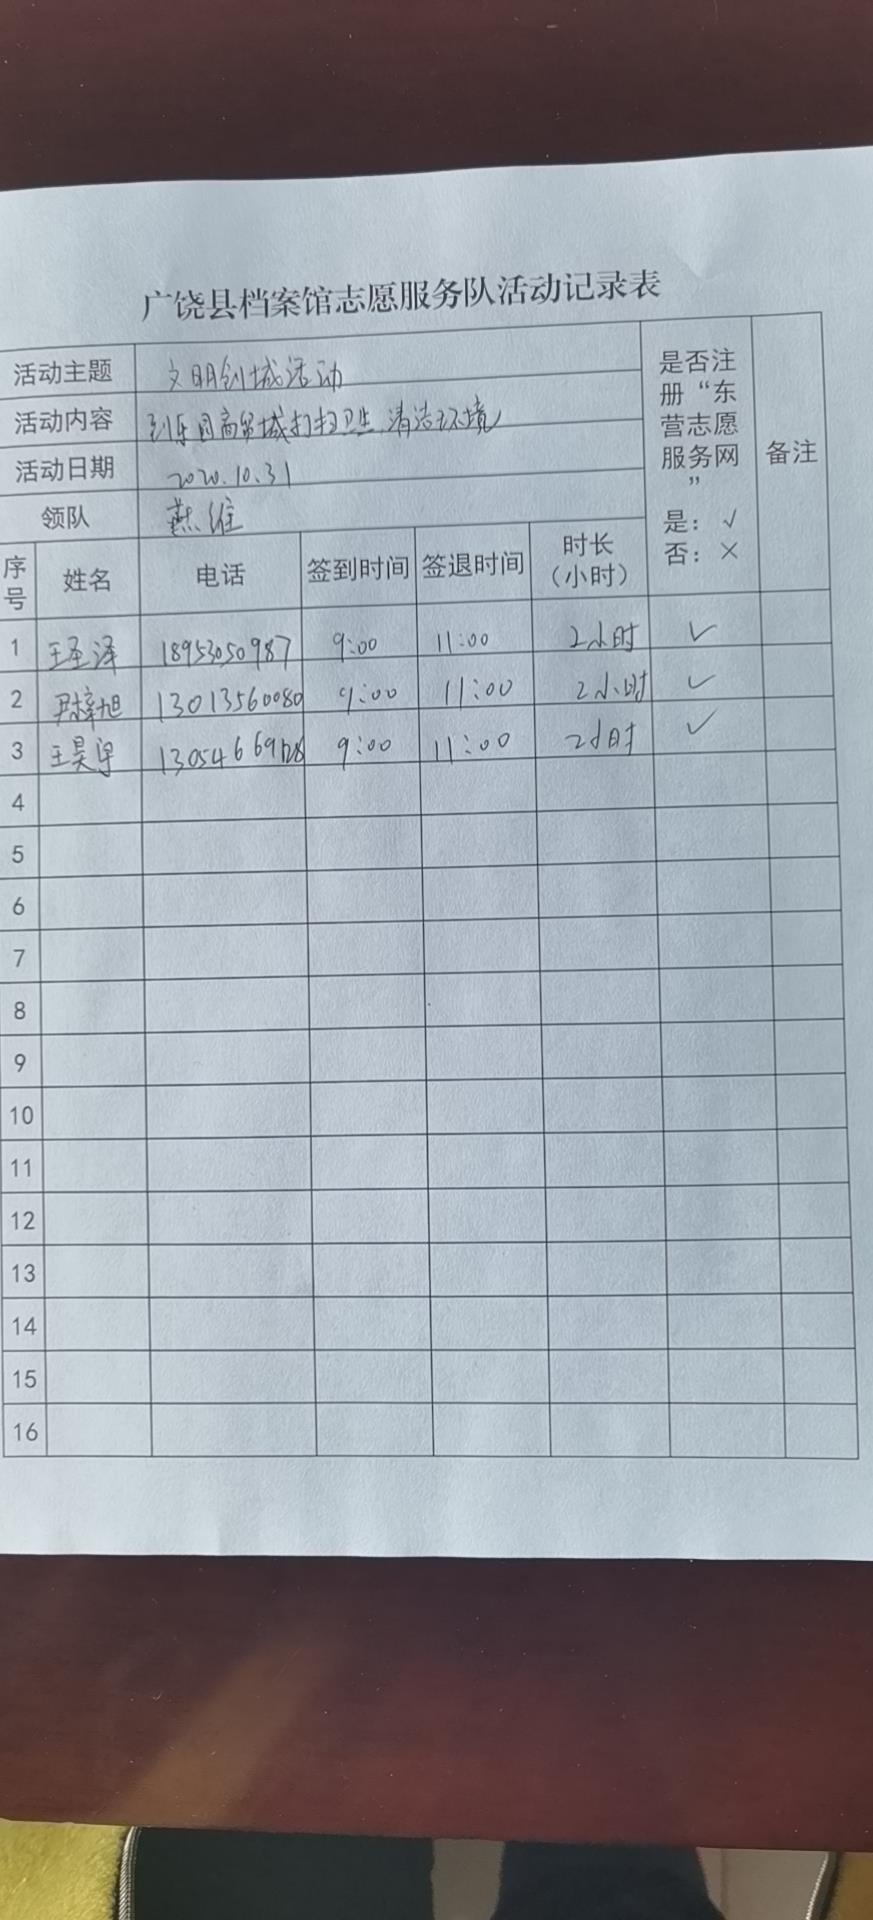 广饶县档案馆志愿服务队活动记录表
活动主题 文明创城活动
活动内容 到乐园商贸城打扫卫生，清洁环境
活动日期 2020.10.31
领队 燕维
是否注册“东营志愿服务网”
是：√
否：×
备注
序号 姓名 电话 签到时间 签退时间 时长（小时）
1 王圣泽 18953050987 9:00 11:00 2小时 ✓
2 尹梓旭 13013560080 9:00 11:00 2小时 ✓
3 王昊 9:00 11:00 2小时 ✓
4
5
6
7
8
9
10
11
12
13
14
15
16